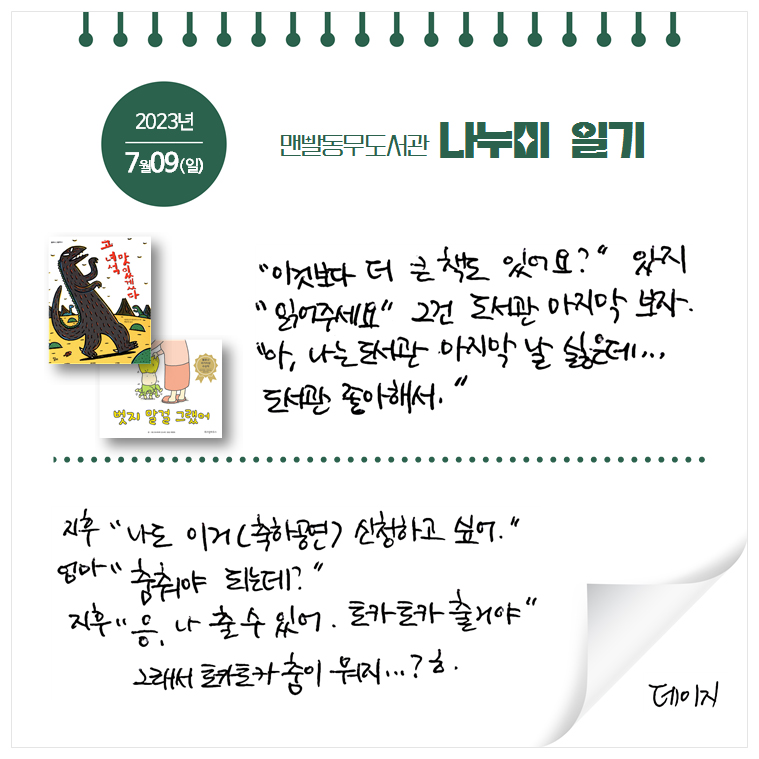 2023년
7월09(일)
맨발동무도서관 나누미 일기
고 녀석 맛있겠다
벗지 말걸 그랬어
"이것보다 더 큰 책도 있어요?" 있지
"읽어주세요" 그건 도서관 마지막 보자.
"아, 나는 도서관 마지막 날 싫은데...,
도서관 좋아해서."
지후 "나도 이거(축하공연) 신청하고 싶어."
엄마 "춤춰야 되는데?"
지후 "응, 나 출 수 있어. 토카토카 출거야"
그래서 토카토카 춤이 뭐지...?ㅎ.
데이지